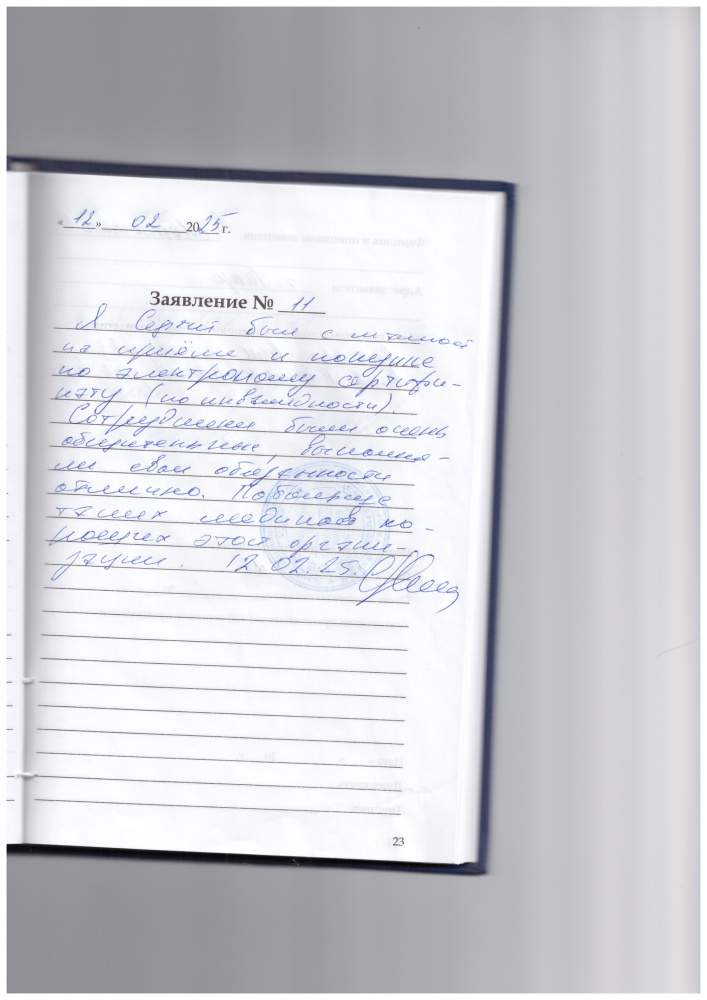 «12» 02 2025 г.
Заявление № 11
Я Сергей был с мамой
на приёме и покупке
по электроному сертифи-
кату (по инвалидности).
Сотрудники были очень
общительные, выполня-
ли свои обязанности
отлично. Побольше
таких людей хо-
роших этой органи-
зации. 12.02.25.
23